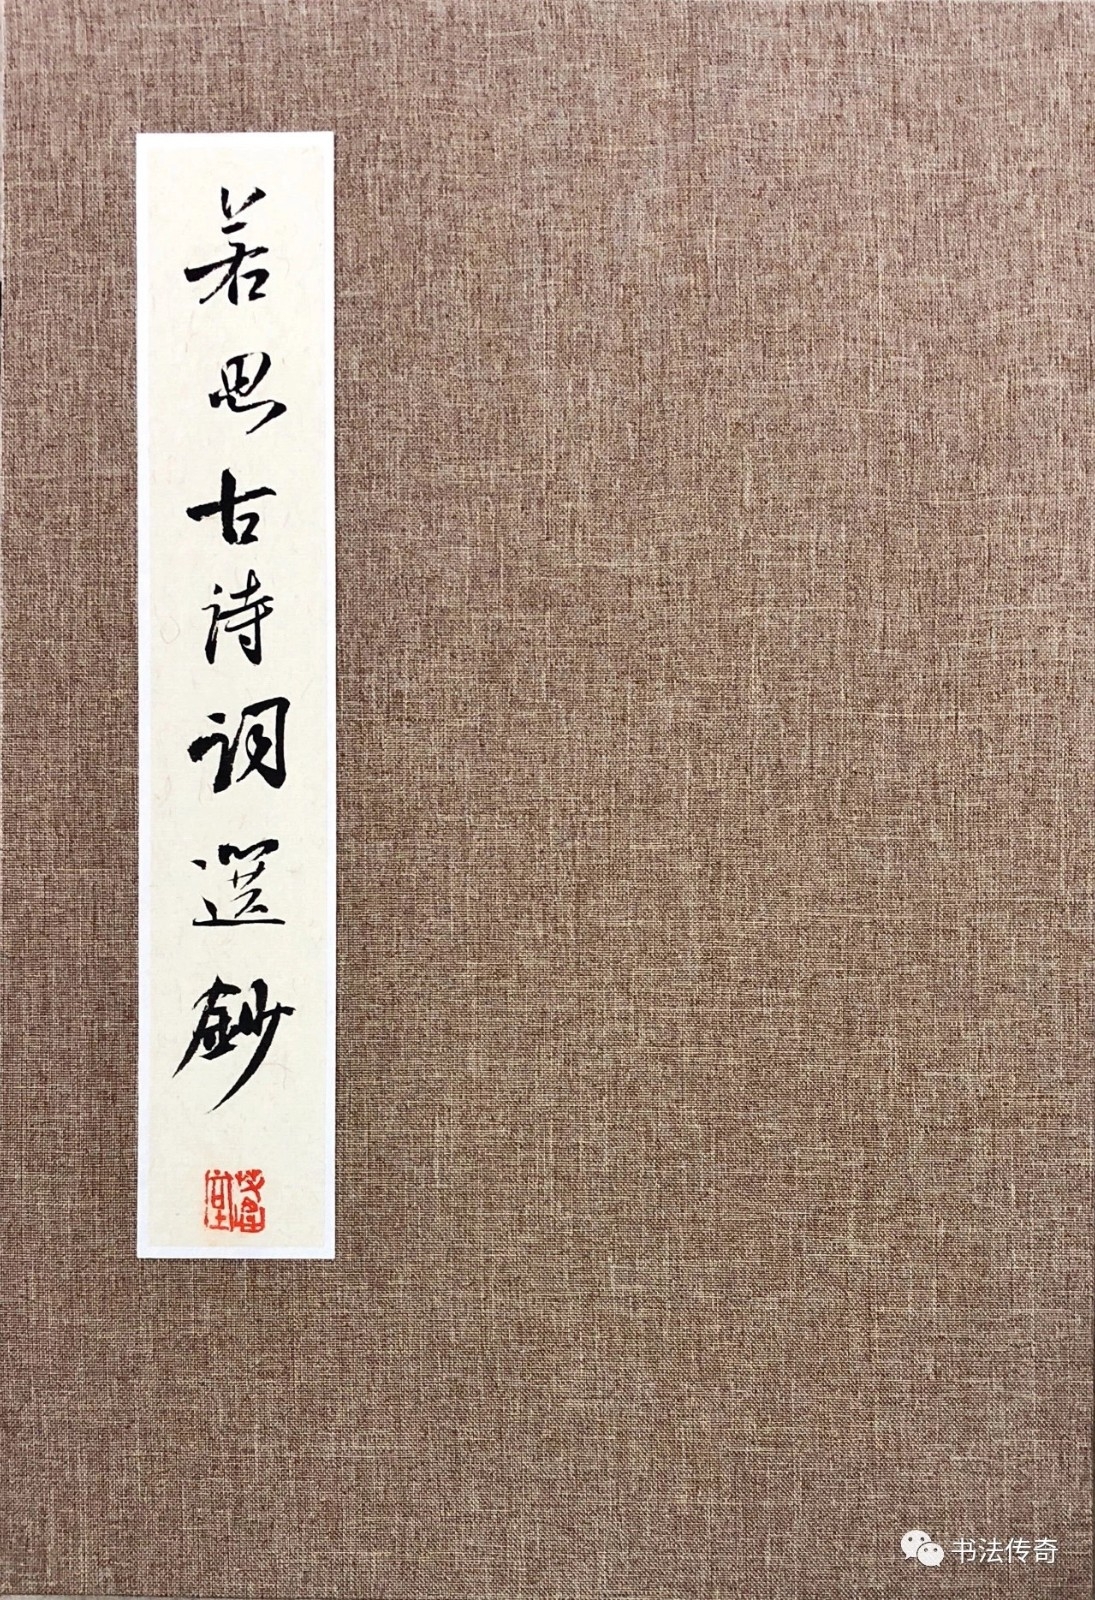 若思古诗词選鈔
书法传奇